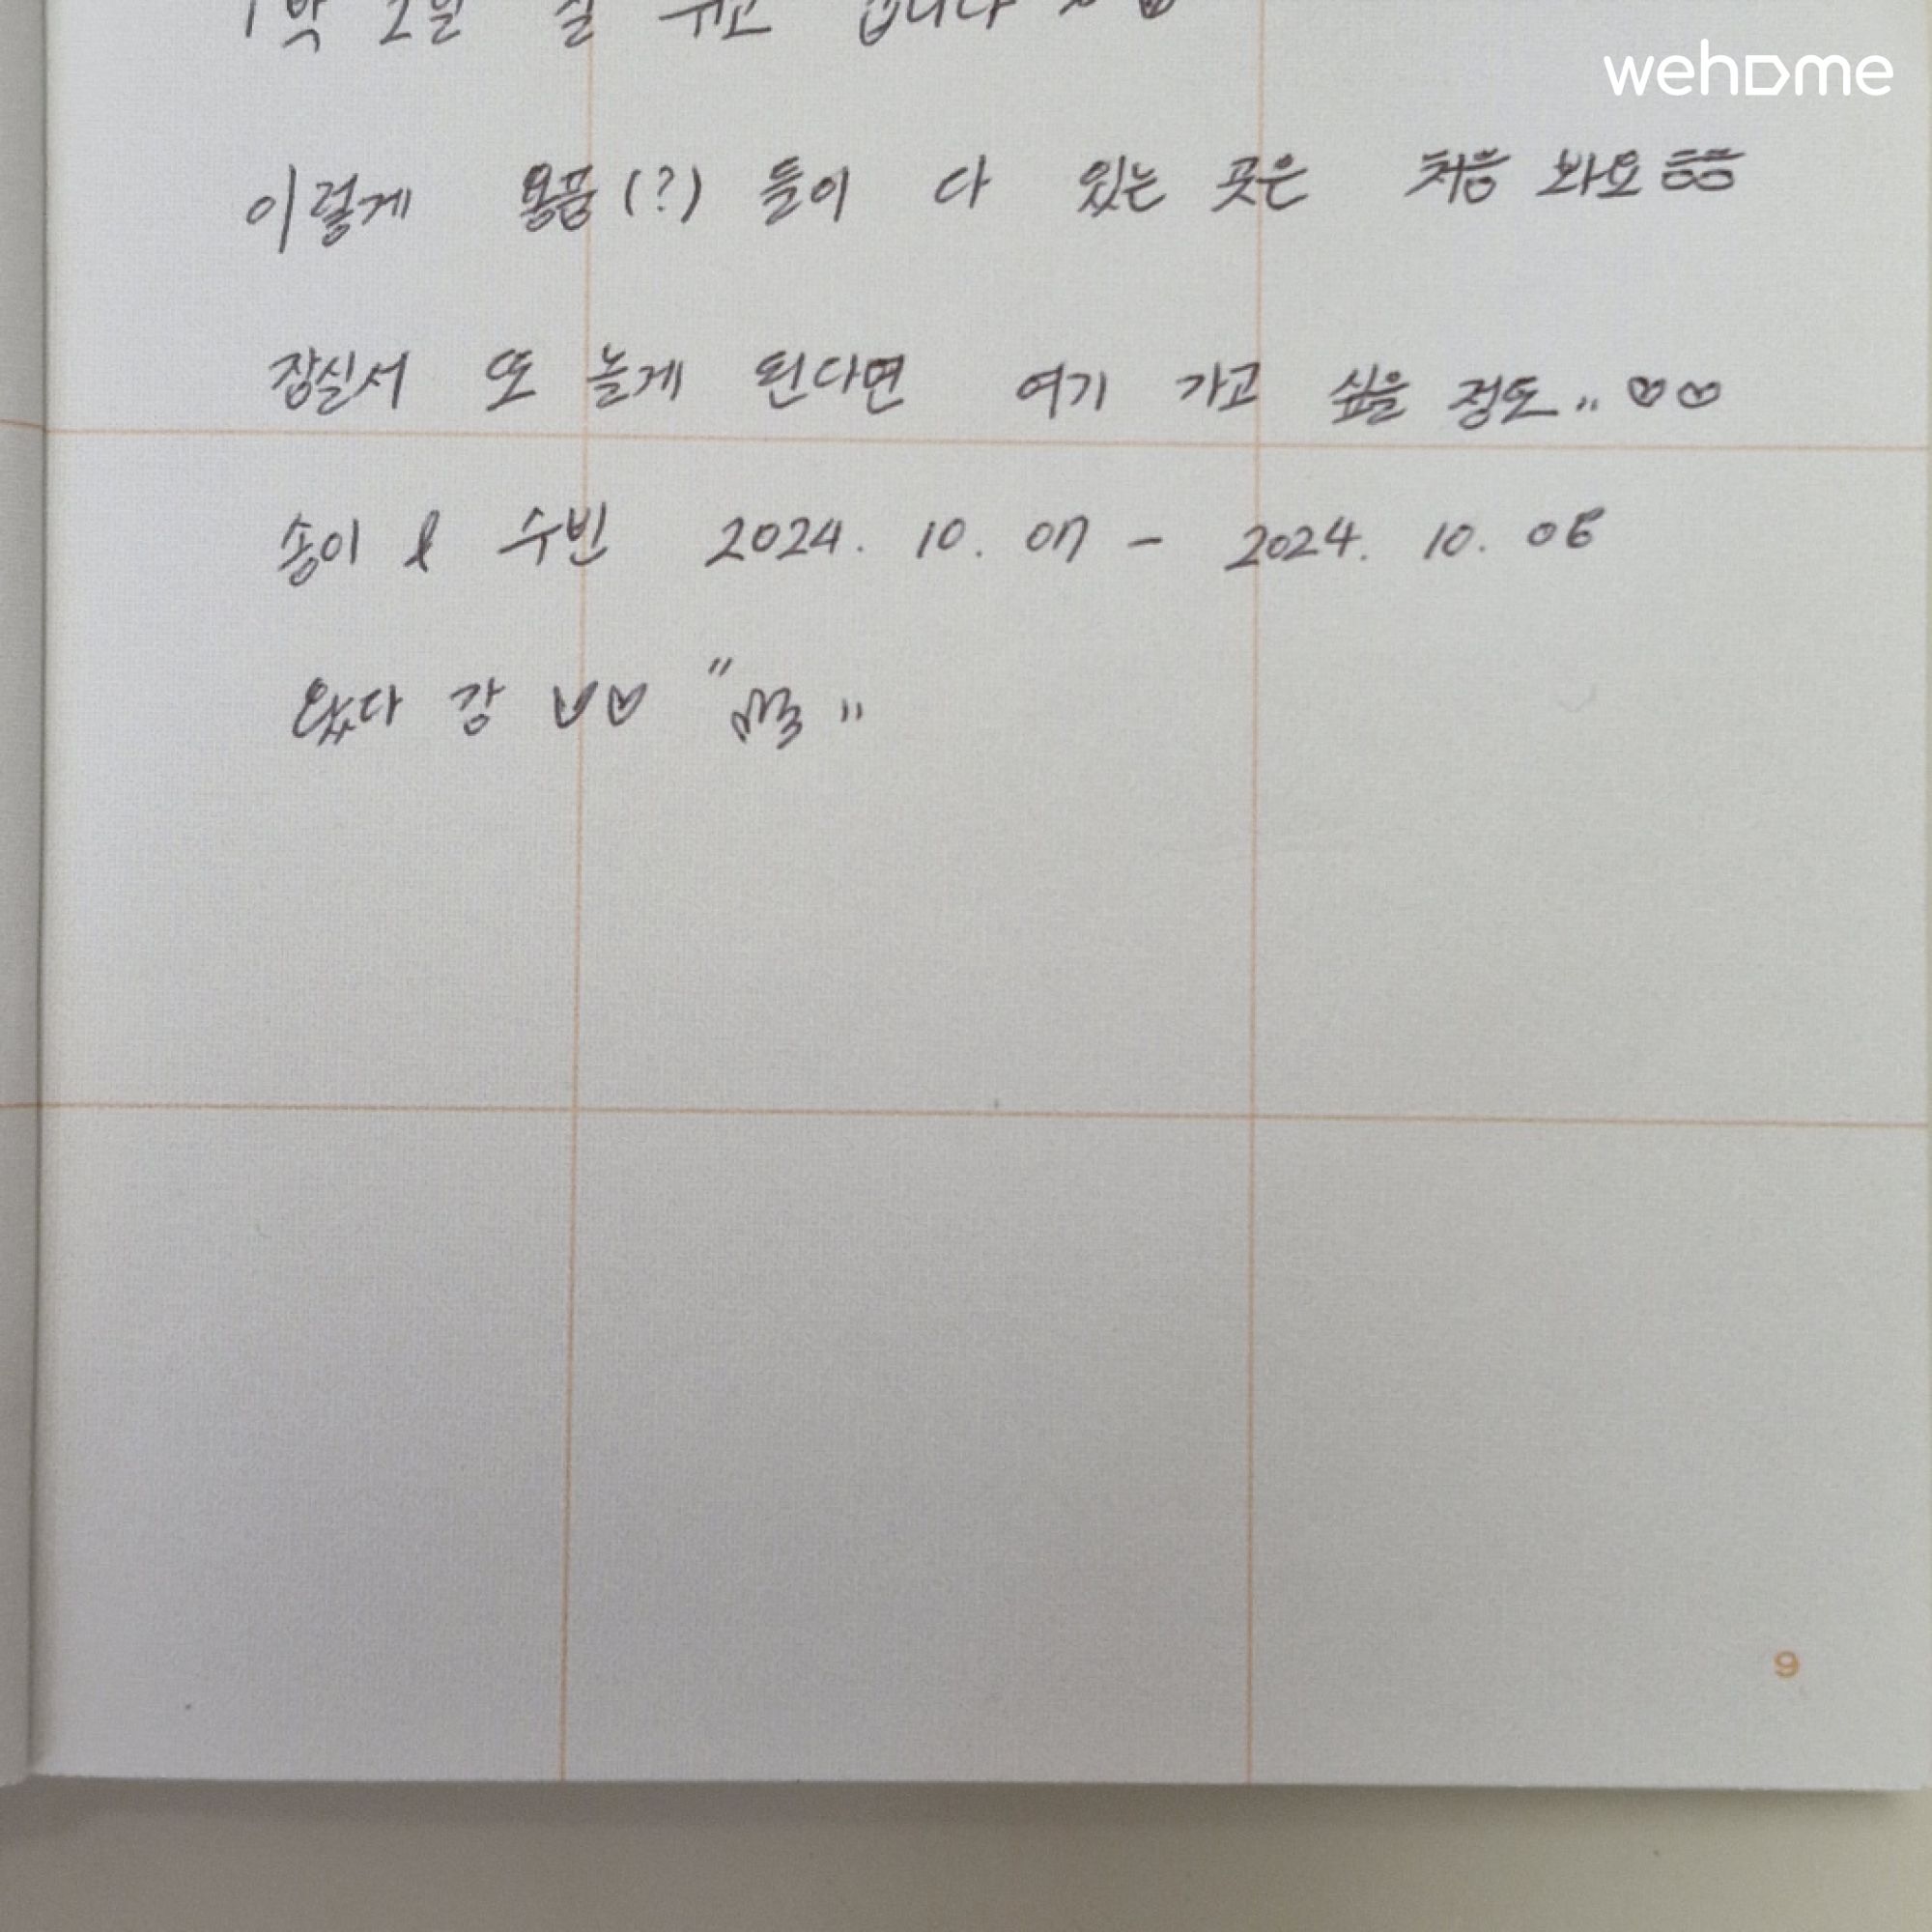 1박 2일 잘 쉬고 갑니다
wehome
이렇게 용품(?)들이 다 있는 곳은 처음 봐요 ㅎㅎ
잠실서 또 놀게 된다면 여기 가고 싶을 정도.. ♡♡
송이 & 수빈 2024. 10. 07 - 2024. 10. 08
왔다 감 ♡♡ " "
9